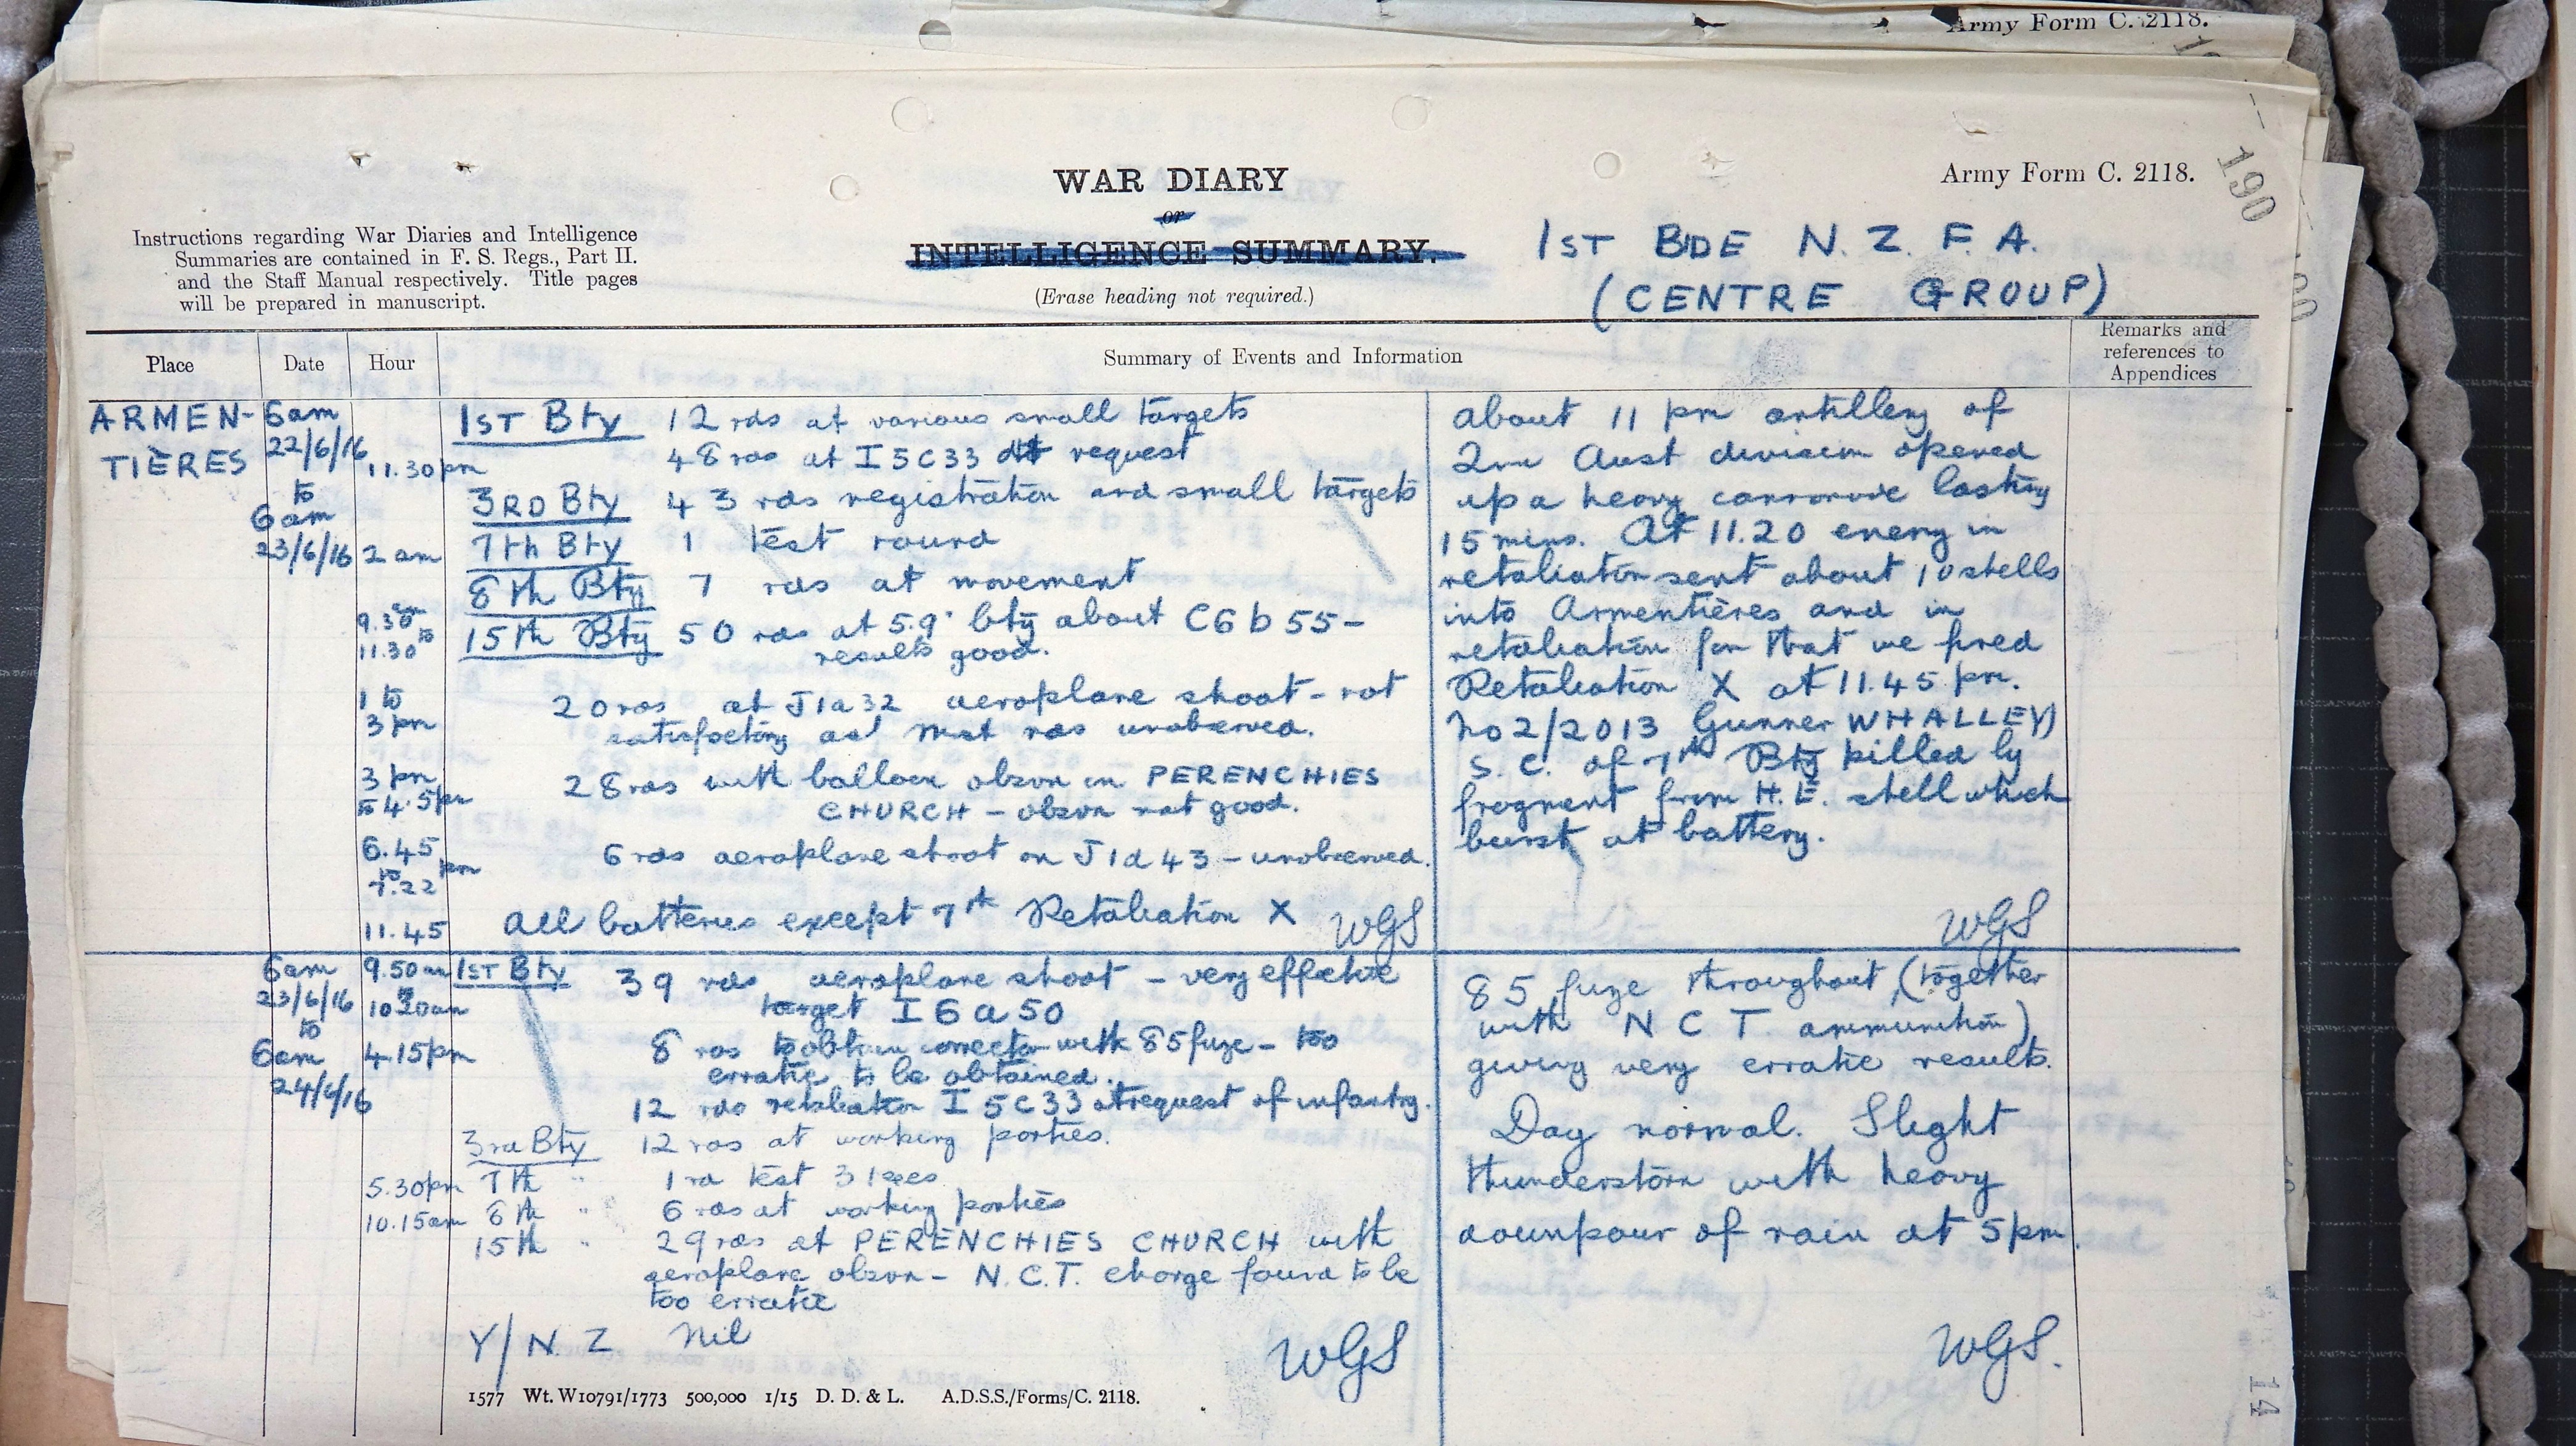 Army Form C. 2118.
WAR DIARY
or
INTELLIGENCE SUMMARY.
(Erase heading not required.)
Army Form C. 2118.
190
Instructions regarding War Diaries and Intelligence
Summaries are contained in F. S. Regs., Part II.
and the Staff Manual respectively. Title pages
will be prepared in manuscript.
1ST BDE N. Z. F. A.
(CENTRE GROUP)
Place
Date
Hour
Summary of Events and Information
Remarks and
references to
Appendices
ARMEN-
TIÈRES
6am
22/6/16
to
6am
23/6/16
1ST Bty 12 rds at various small targets
11.30pm 48 rds at I5C33 at request
3RD Bty 43 rds registration and small targets
2 am 7th Bty 1 test round
8th Bty 7 rds at movement
9.30am
to
11.30
15th Bty 50 rds at 5.9" bty about C6b55-
results good.
1 to
3pm
20 rds at J1a32 aeroplane shoot - not
satisfactory as most rds unobserved.
3 pm
to 4.5pm
28 rds with balloon obsvn on PERENCHIES
CHURCH - obsvn not good.
6.45
to
7.22 pm
6 rds aeroplane shoot on J1d43 - unobserved.
11.45 All batteries except 7th Retaliation X WGS
about 11 pm artillery of
2nd Aust division opened
up a heavy cannonade lasting
15 mins. At 11.20 enemy in
retaliation sent about 10 shells
into Armentières and in
retaliation for that we fired
Retaliation X at 11.45 pm.
No 2/2013 Gunner WHALLEY
S. C. of 7th Bty killed by
fragment from H.E. shell which
burst at battery.
WGS
6am
23/6/16
to
6am
24/6/16
9.50am
to
10.20am
1ST Bty 39 rds aeroplane shoot - very effective
target I6a50
4.15pm 8 rds to obtain corrector with 85 fuze - too
erratic to be obtained.
12 rds retaliation I5C33 at request of infantry.
3rd Bty 12 rds at working parties.
5.30pm 7th " 1 rd test
10.15am 8th " 6 rds at working parties
15th " 29 rds at PERENCHIES CHURCH with
aeroplane obsvn - N.C.T. charge found to be
too erratic
Y/N Z Nil
WGS
85 fuze throughout (together
with N C T ammunition)
giving very erratic results.
Day normal. Slight
thunderstorm with heavy
downpour of rain at 5pm.
WGS.
1577 Wt. W10791/1773 500,000 1/15 D. D. & L. A.D.S.S./Forms/C. 2118.
14